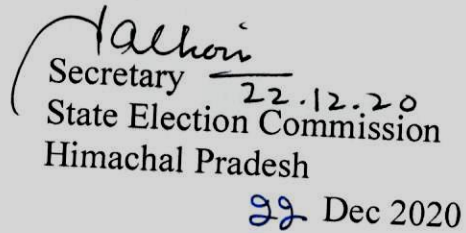 Secretary
22.12.20
State Election Commission
Himachal Pradesh
22 Dec 2020